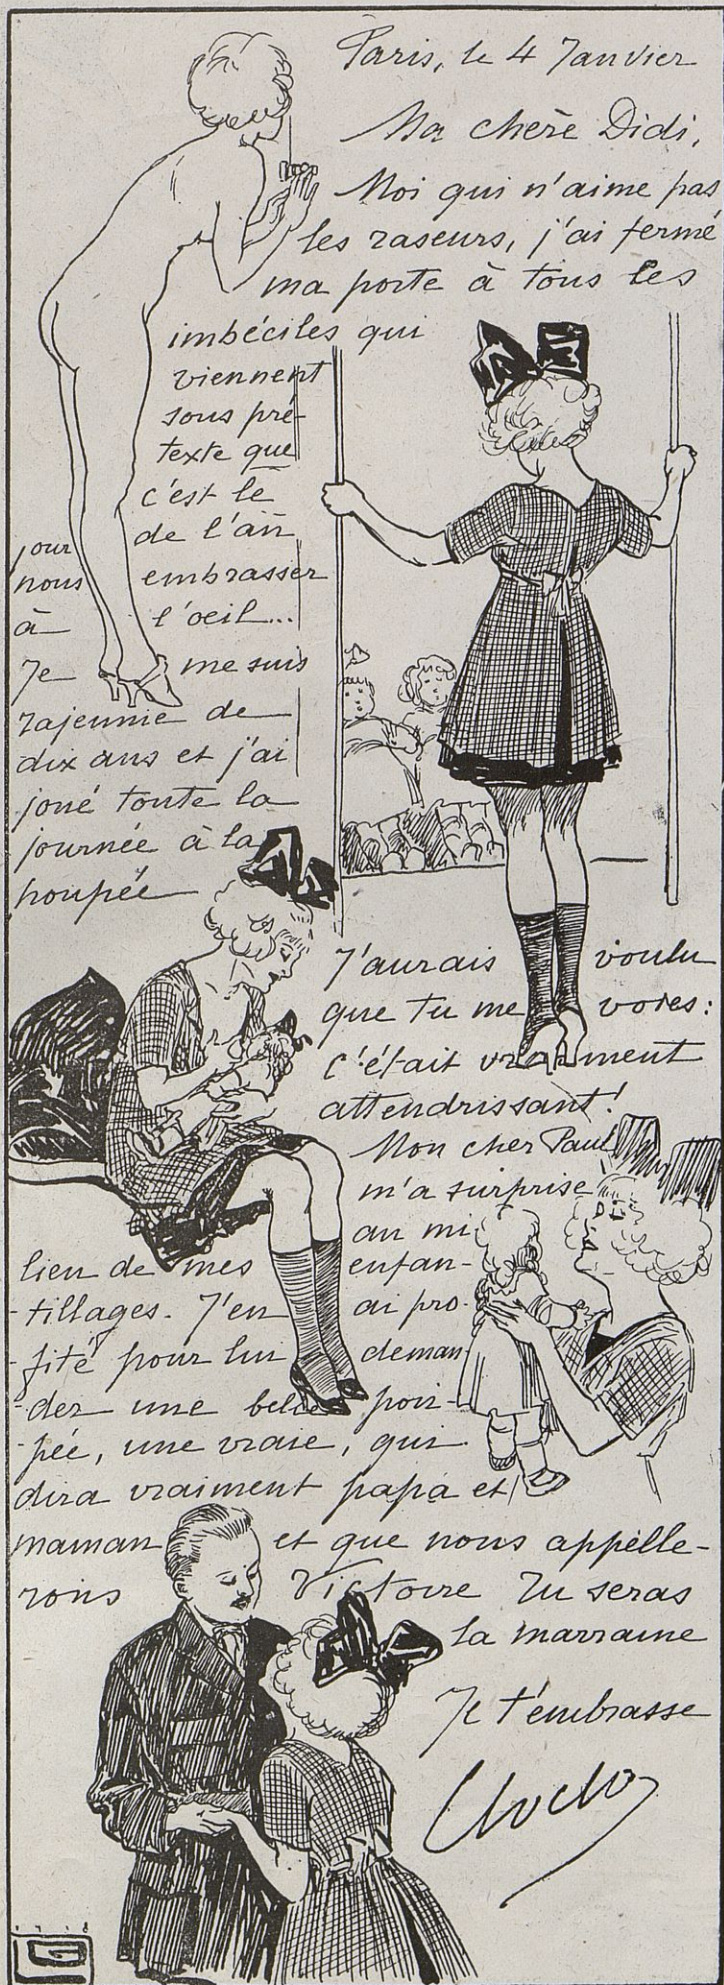 Paris, le 4 Janvier
Ma chère Didi,
Moi qui n'aime pas
les raseurs, j'ai fermé
ma porte à tous les
imbéciles qui
viennent
sous pré-
texte que
c'est le
jour de l'an
nous embrasser
à l'oeil...
Je me suis
rajeunie de
dix ans et j'ai
joué toute la
journée à la
poupée
J'aurais voulu
que tu me voies :
c'était vraiment
attendrissant !
Mon cher Paul
m'a surprise
au mi
lieu de mes enfan-
-tillages. J'en ai pro-
-fité pour lui deman
-der une belle pou-
-pée, une vraie, qui
dira vraiment papa et
maman et que nous appelle-
rons Victoire Tu seras
la marraine
Je t'embrasse
Cloclo
1918